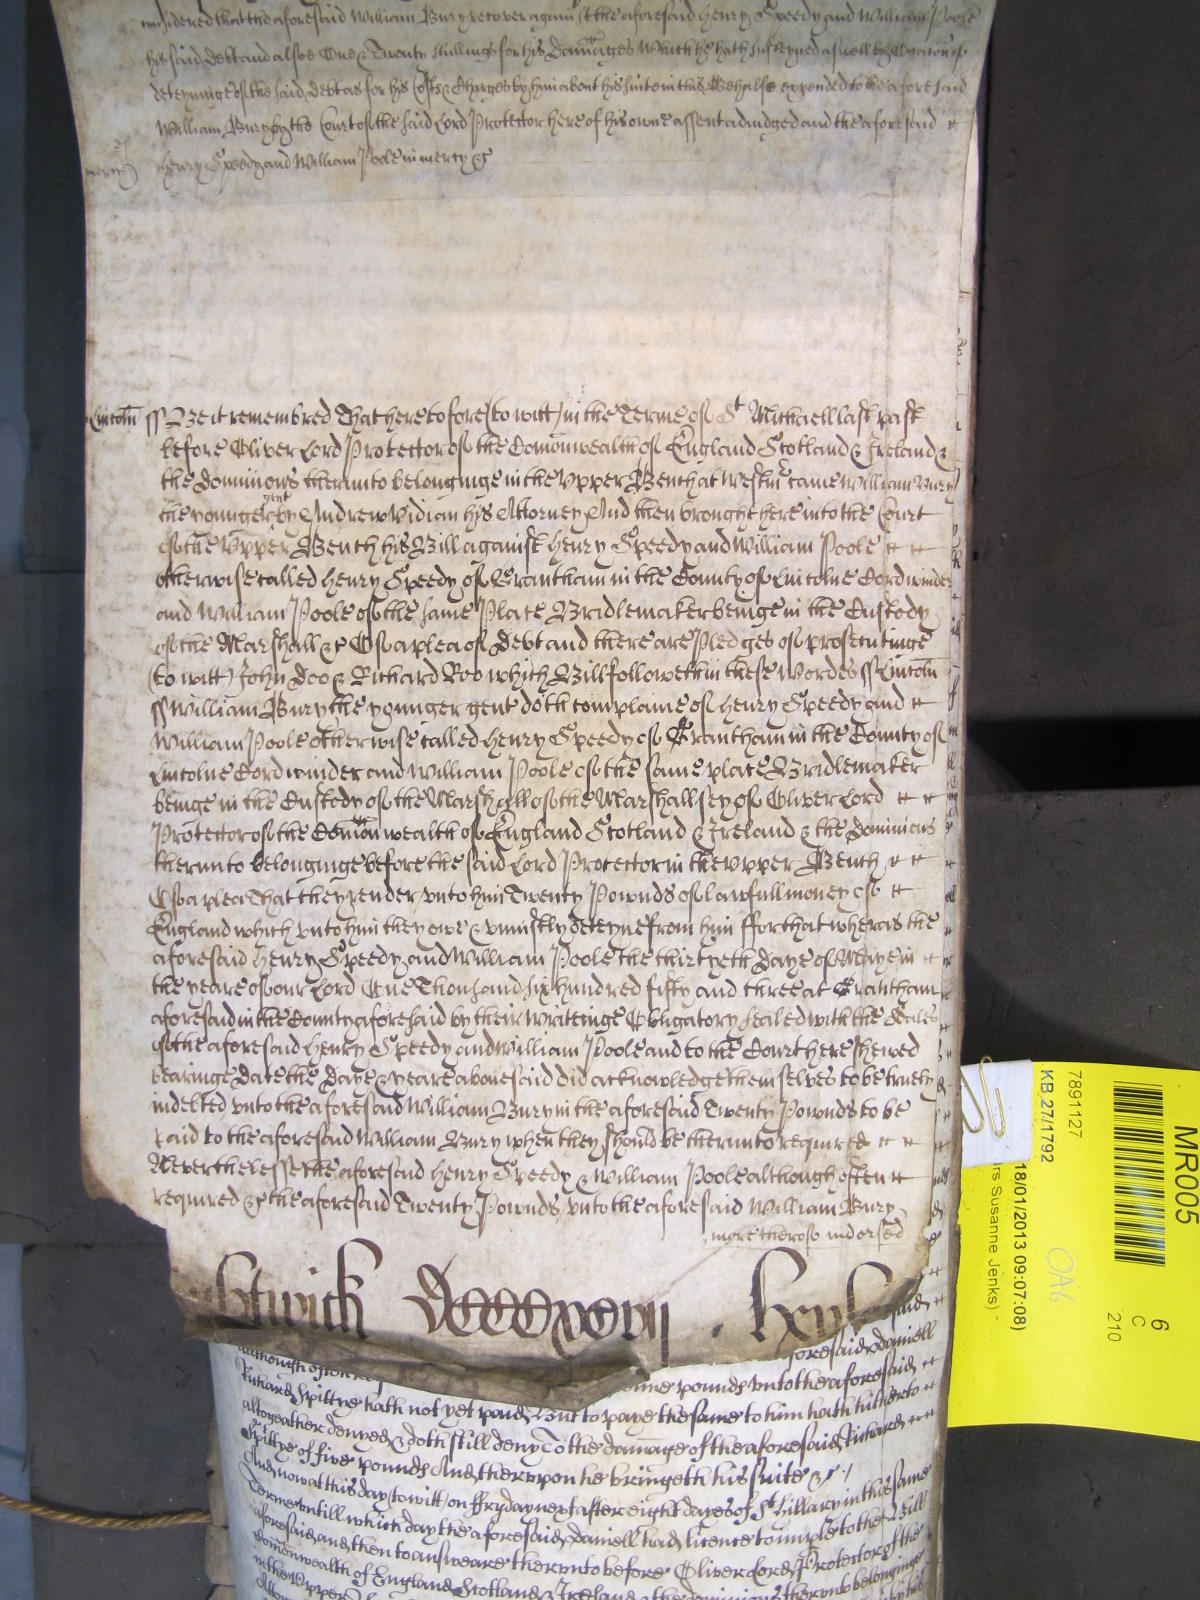 considered that the aforesaid William Bury recover against the aforesaid Henry Speedy and William Poole
his said debt and alsoe One & Twenty shillings for his Dammages which he hath susteyned aswell by occasion of
deteyninge of the said debt as for his Costs & Charges by him about his suite in this Behalfe expended to the aforesaid
William Bury by the Court of the said Lord Protector here of his owne assent adiudged and the aforesaid
Henry Speedy and William Poole in mercy &c
Lincoln ss Be it remembred That heretofore (to witt) in the Terme of St Michaell last past
before Oliver Lord Protector of the Comonwealth of England Scotland & Ireland &
the dominions therunto belonginge in the Upper Bench at Westmr came William Bury
the younger gent by Andrew Vidian his Attorney And then brought here into the Court
of the Upper Bench his Bill against Henry Speedy and William Poole
otherwise called Henry Speedy of Grantham in the County of Lincolne Cordwinder
and William Poole of the same Place Bridlemaker beinge in the Custody
of the Marshall &c Of a plea of Debt and there are Pledges of prosecutinge
(to witt) John Doo & Richard Roo which Bill followeth in these Wordes ss Lincoln
ss William Bury the younger gent doth complaine of Henry Speedy and
William Poole otherwise called Henry Speedy of Grantham in the County of
Lincolne Cordwinder and William Poole of the same place Bridlemaker
beinge in the Custody of the Marshall of the Marshallsey of Oliver Lord
Protector of the Comonwealth of England Scotland & Ireland & the dominions
therunto belonginge before the said Lord Protector in the Upper Bench
Of a plea That they render unto him Twenty Pownds of lawfull money of
England which unto him they owe & uniustly deteyne from him ffor that wheras the
aforesaid Henry Speedy and William Poole the thirtyeth Daye of Maye in
the yeare of our Lord One Thousand six hundred fifty and three at Grantham
aforesaid in the County aforesaid by their writeinge Obligatory sealed with the Seales
of the aforesaid Henry Speedy and William Poole and to the Court here shewed
bearinge Date the Daye & yeare abovesaid did acknowledge themselves to be truely
indebted unto the aforesaid William Bury in the aforesaid Twenty Pownds to be
paid to the aforesaid William Bury when they should be therunto required
Neverthelesse the aforesaid Henry Speedy & William Poole although often
required &c the aforesaid Twenty Pownds unto the aforesaid William Bury
more therof indorsed
aforesaid Daniell
although often
pounds unto the aforesaid
Richard Spittye hath not yet paid But to paye the same to him hath hitherto
altogeather denyed & doth still deny To the damage of the aforesaid Richard
Spittye of five pounds And therupon he bringeth his suite &c
And now at this day (to witt) on ffryday next after eight dayes of St Hillary in this same
Terme untill which day the aforesaid Daniell had licence to imple to the Bill
aforesaid and then to answeare therunto before Oliver Lord Protector of the
Comonwealth of England Scotland & Ireland & the dominions therunto belonginge
in the Upper
MR005
6
C
210
7891127
KB 27/1792
18/01/2013 09:07:08)
rs Susanne Jenks) -
OA6